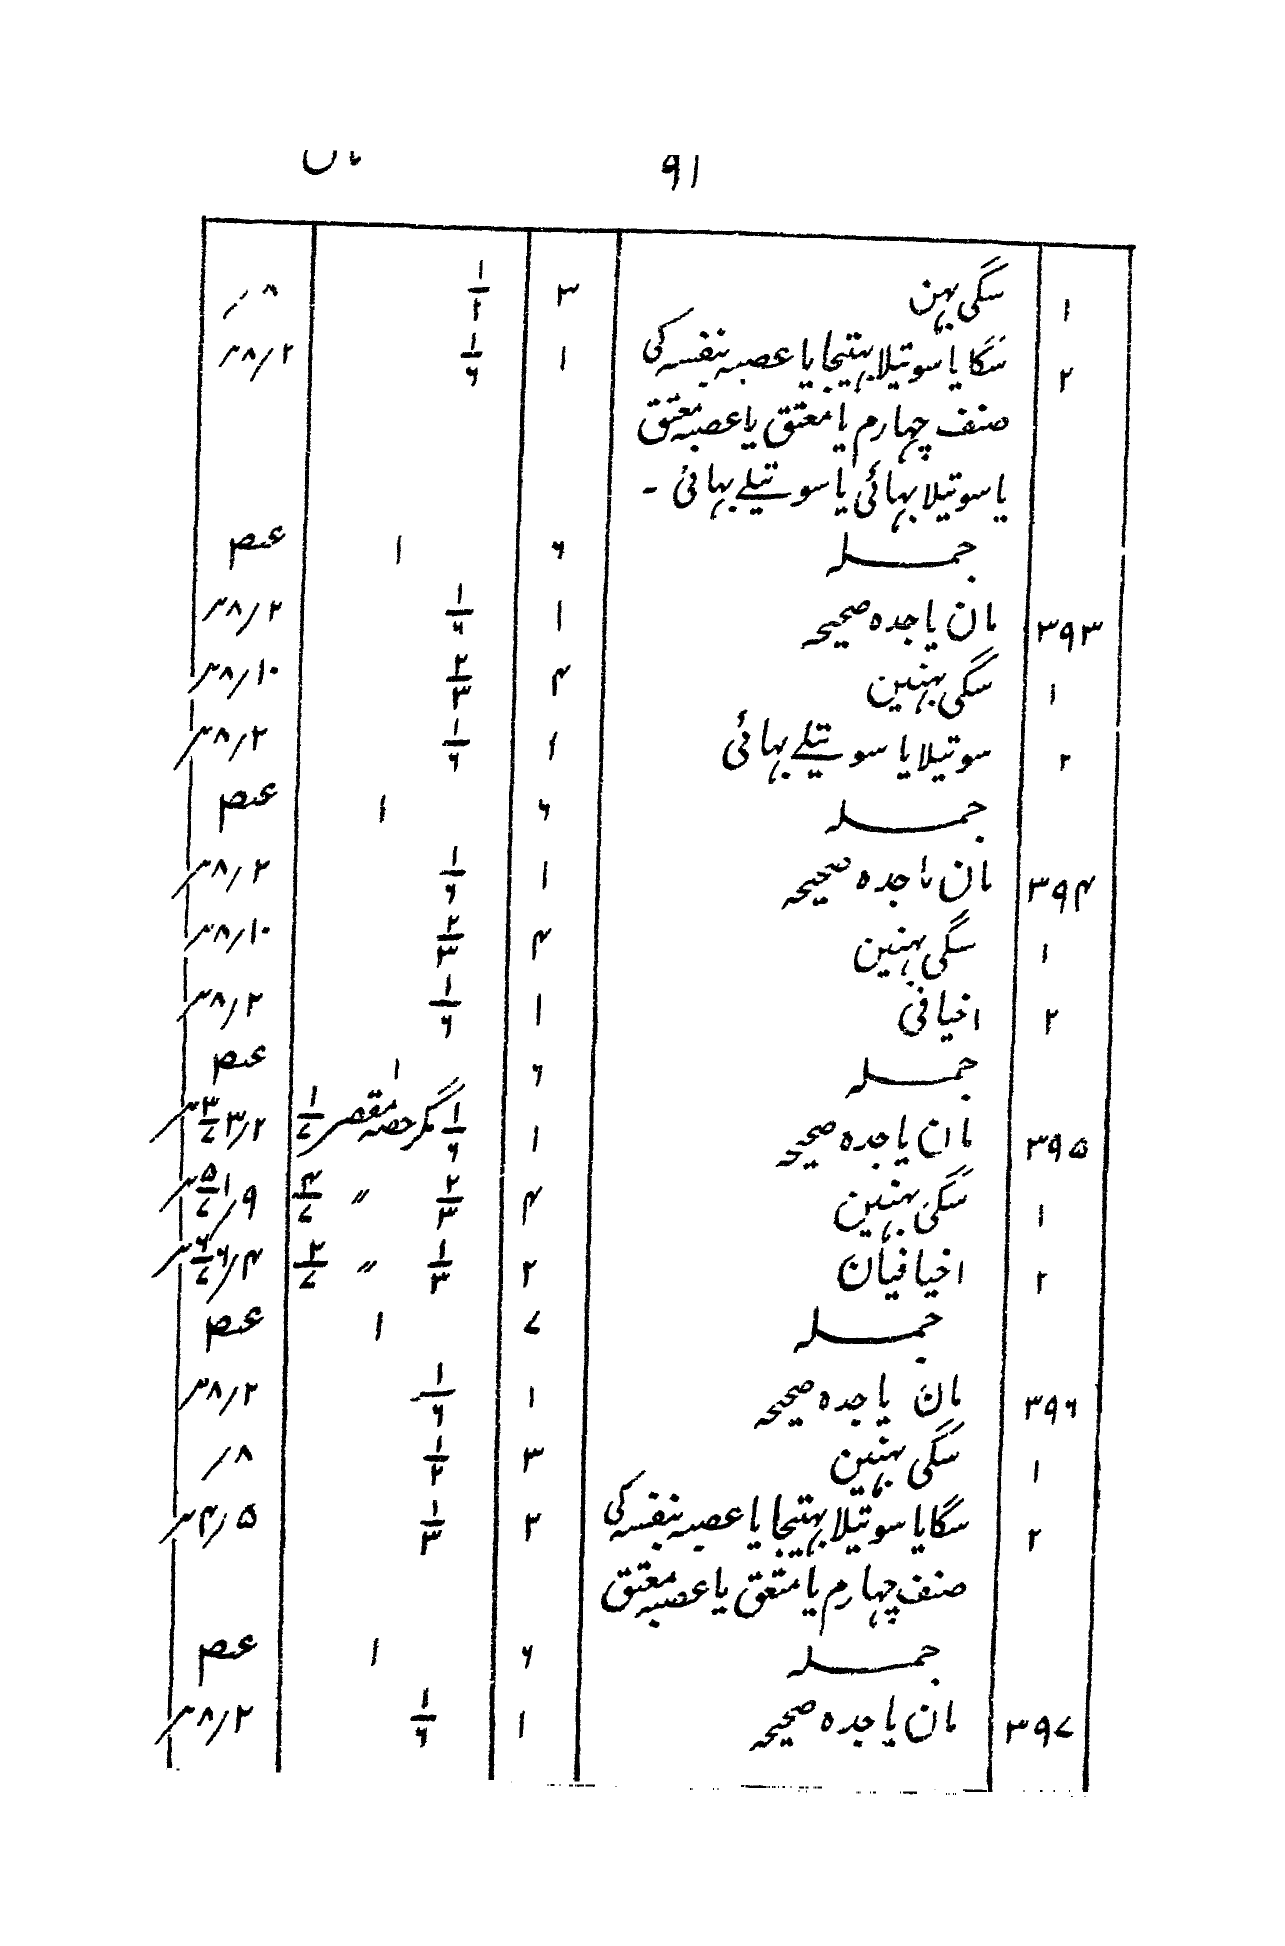 ۹۱ ماں
۱ سگی بہن ۳ ۱/۲ ۸/
۲ سگا یا سوتیلا بہتیجا یا عصبہ بنفسہ کی ۱ ۱/۶ ۲/۸
صنف چہارم یا معتق یا عصبہ معتق
یا سوتیلا بہائی یا سوتیلے بہائی ۔
جملہ ۶ ۱ عصہ
۳۹۳ مان یا جدہ صحیحہ ۱ ۱/۶ ۲/۸
۱ سگی بہنین ۴ ۲/۳ ۱۰/۸
۲ سوتیلا یا سوتیلے بہائی ۱ ۱/۶ ۲/۸
جملہ ۶ ۱ عصہ
۳۹۴ مان یا جدہ صحیحہ ۱ ۱/۶ ۲/۸
۱ سگی بہنین ۴ ۲/۳ ۱۰/۸
۲ اخیافی ۱ ۱/۶ ۲/۸
جملہ ۶ ۱ عصہ
۳۹۵ مان یا جدہ صحیحہ ۱ ۱/۶ مگر حصہ مقصر ۱/۷ ۲/۳ ۳/۷
۱ سگی بہنین ۴ ۲/۳〃 ۴/۷ ۹/۱ ۵/۷
۲ اخیافیان ۲ ۱/۳ 〃 ۲/۷ ۴/۶ ۶/۷
جملہ ۷ ۱ عصہ
۳۹۶ مان یا جدہ صحیحہ ۱ ۱/۶ ۲/۸
۱ سگی بہنین ۳ ۱/۲ ۸/
۲ سگا یا سوتیلا بہتیجا یا عصبہ بنفسہ کی ۲ ۱/۳ ۵/۴
صنف چہارم یا متعق یا عصبہ معتق
جملہ ۶ ۱ عصہ
۳۹۷ مان یا جدہ صحیحہ ۱ ۱/۶ ۲/۸